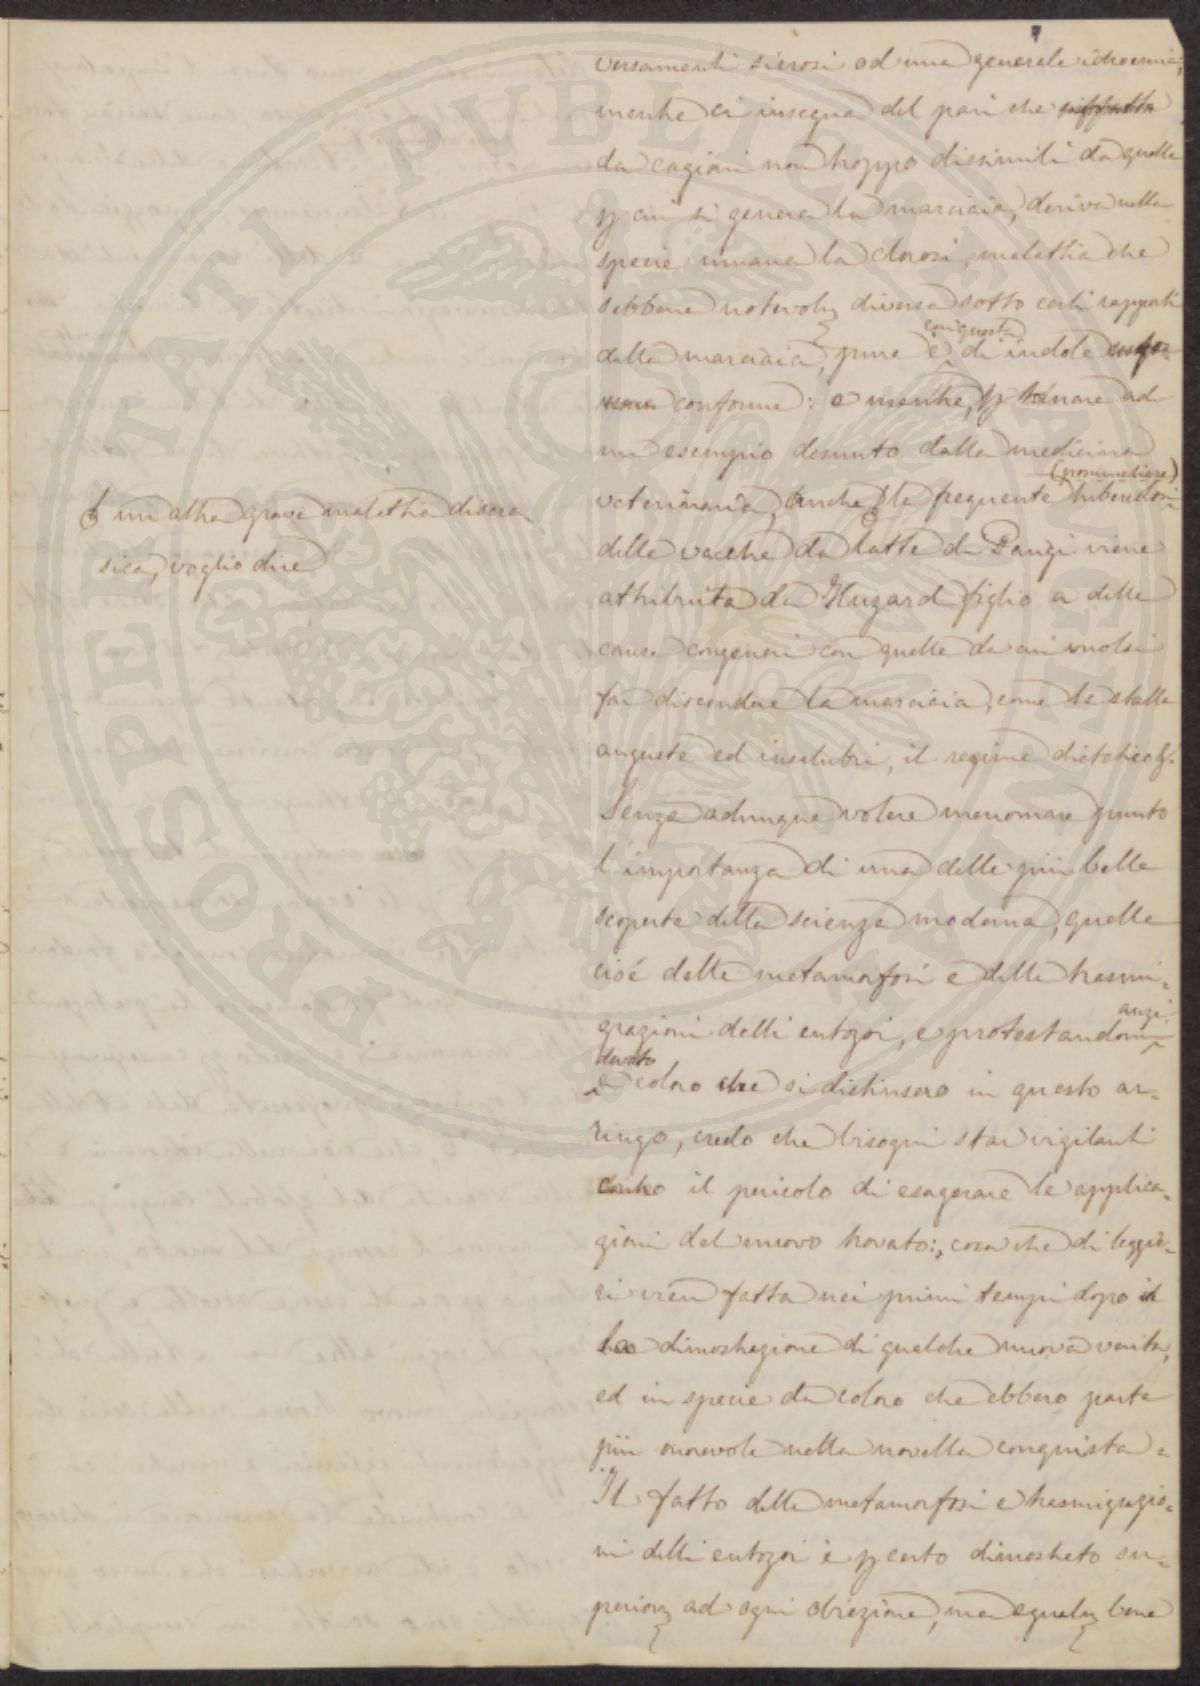 versamenti sierosi od una generale idroemia;
mentre ci insegna del pari che siffatta
da cagioni non troppo dissimili da quelle
p cui si genera la marciaia, deriva nella
specie umana la clorosi, malattia che
sebbene notevolm diversa sotto certi rapporti
con questa
dalla marciaia, pure è di indole
conforme: e mentre, p tornare ad
un esempio desunto dalla medicina
(pommeliere)
veterinaria, anche la frequente tubercolosi
un altra grave malattia discra-
sica, voglio dire
delle vacche da latte di Parigi viene
attribuita da Huzard figlio a delle
cause congeneri con quelle da cui vuolsi
far discendere la marciaia, come le stalle
anguste ed insalubri, il regime dietetico &.
Senza adunque volere menomare punto
l'importanza di una delle più belle
scoperte della scienza moderna, quella
cioè delle metamorfosi e delle trasmi-
anzi
grazioni delli entozoi, e protestandomi
devoto
a coloro che si distinsero in questo ar-
ringo, credo che bisogni star vigilanti
contro il pericolo di esagerare le applica-
zioni del nuovo trovato; cosa che di leggie-
ri vien fatta nei primi tempi dopo
la dimostrazione di qualche nuova verità,
ed in specie da coloro che ebbero parte
più onorevole nella novella conquista.
Il fatto delle metamorfosi e trasmigrazio-
ni delli entozoi è p certo dimostrato su-
periorm ad ogni obiezione, ma egualm bene